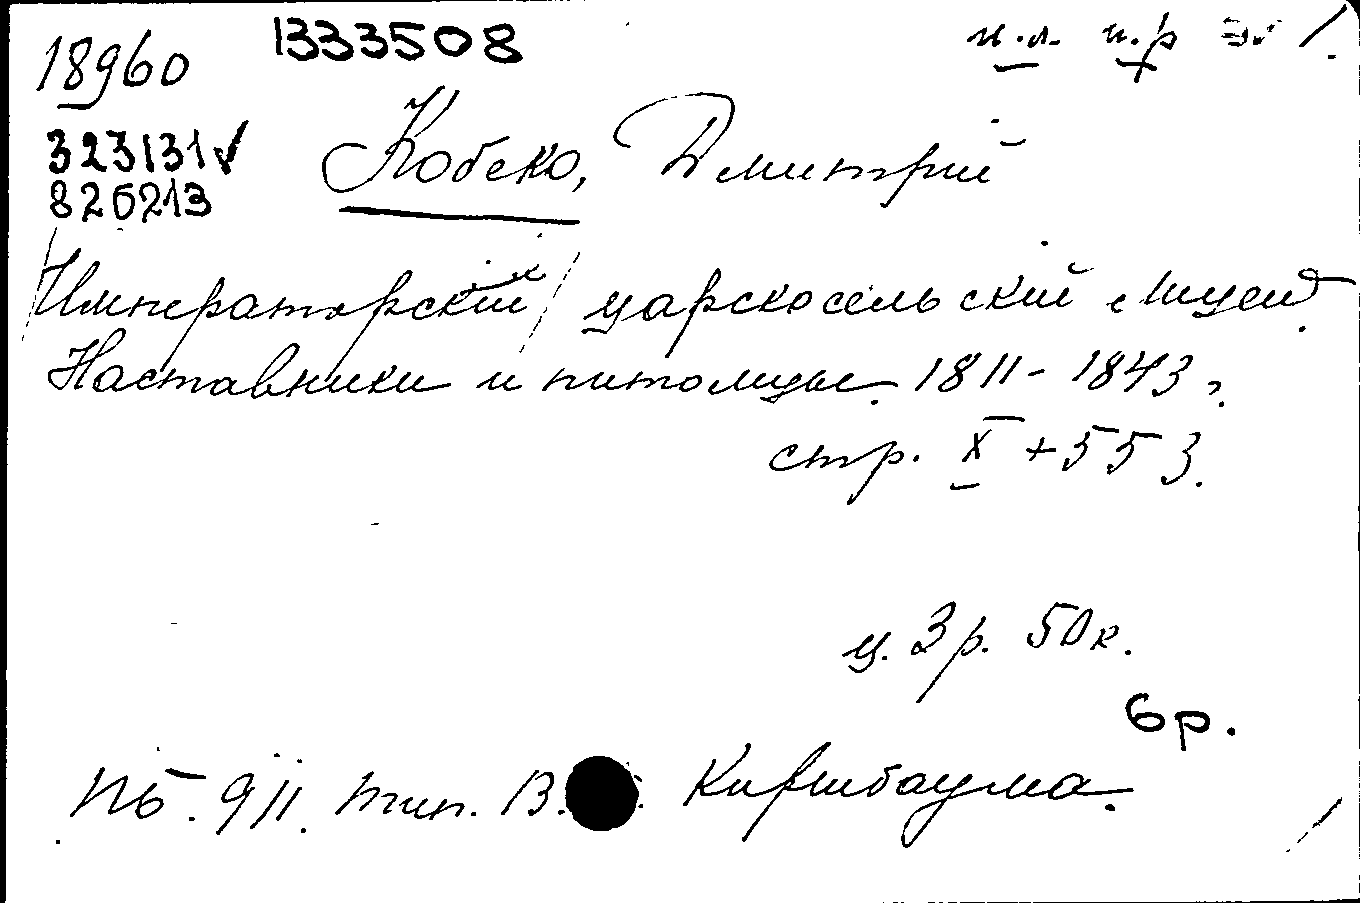 18960 1333508
323131✓
820213
Кобеко, Дмитрий
Императорский царскосельский Лицей.
Наставники и питомцы. 1811-1843 г.
стр. X + 553.
ц. 3 р. 50 к.
6 р.
Пб. 911. тип. В. Киршбаума.